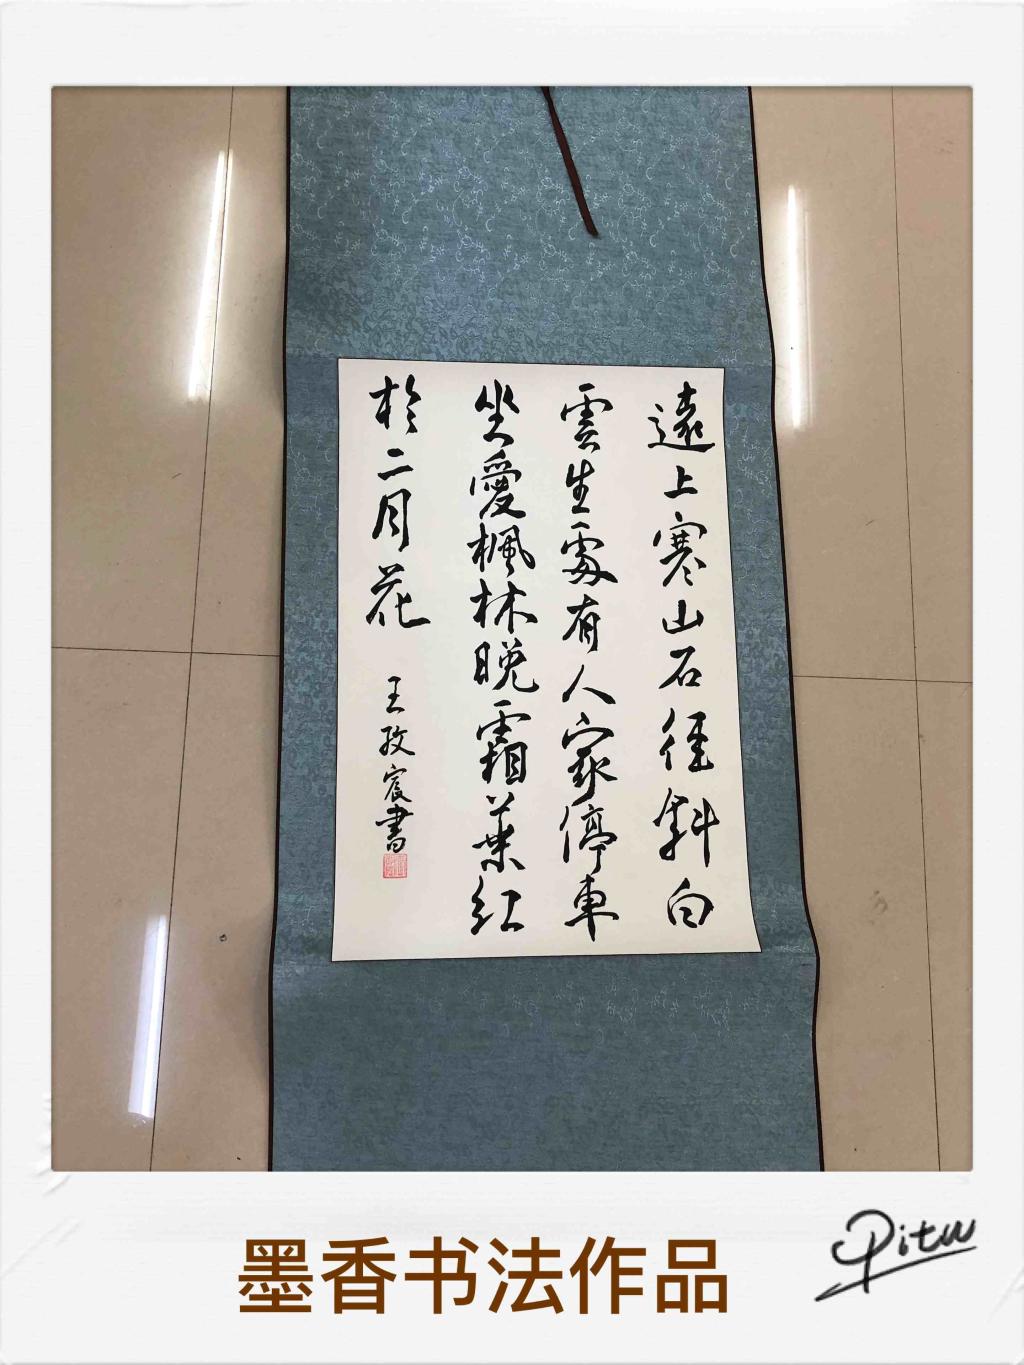 遠上寒山石径斜白
雲生處有人家停車
坐愛楓林晚霜葉紅
於二月花
王孜宸書
墨香书法作品
Pitu